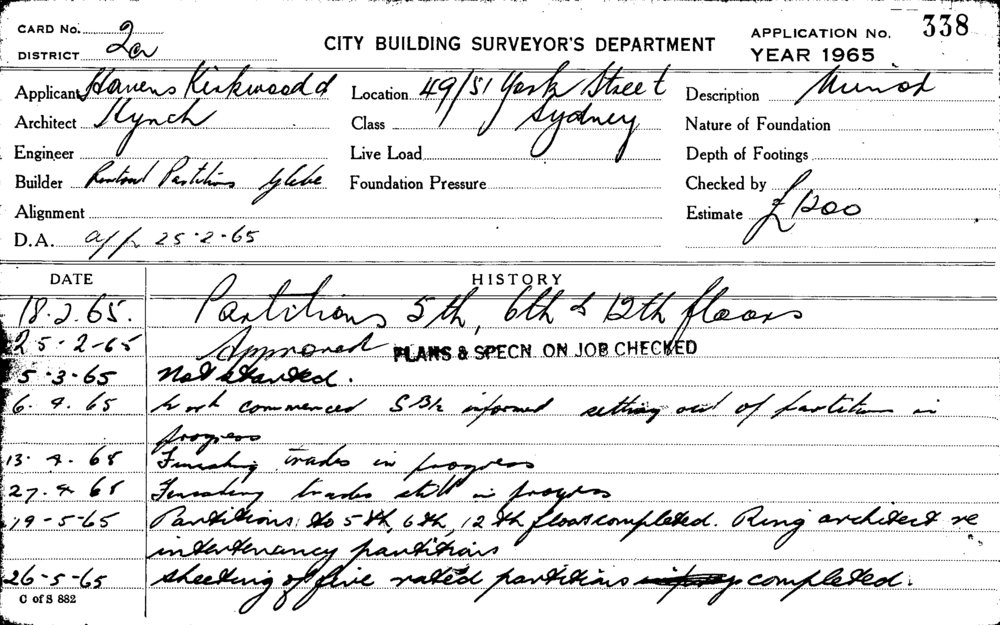 CARD No. 2a
DISTRICT
CITY BUILDING SURVEYOR'S DEPARTMENT
APPLICATION No. 338
YEAR 1965
Applicant Havens Kirkwood &
Location 49/51 York Street
Description Minor
Architect Kynch
Class Sydney
Nature of Foundation
Engineer
Live Load
Depth of Footings
Builder Partitions Glebe
Foundation Pressure
Checked by
Alignment
Estimate £1200
D.A. app 25-2-65
DATE HISTORY
18.2.65. Partitions 5th, 6th & 12th floors
25-2-65 Approved PLANS & SPECN. ON JOB CHECKED
5-3-65 Not started.
6.4.65 Work commenced informed setting out of partition in
progress
13.4.65 Finishing trades in progress
27.4.65 Finishing trades still in progress
19-5-65 Partitions to 5th, 6th, 12th floor completed. Ring architect re
intertenancy partitions
26-5-65 sheeting of fire rated partitions completed.
C of S 882